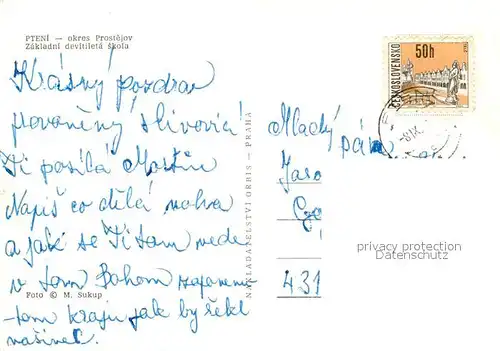 PTENÍ — okres Prostějov
Základní devítiletá škola
Krásný pozdrav
provoněný slivovicí
Ti posílá Martin
Napiš co dělá
a jak se Ti tam vede
v tom Bohem zapomenu-
-tom kraju jak by řekl
našinec.
Foto © M. Sukup
NAKLADATELSTVÍ ORBIS — PRAHA
ČESKOSLOVENSKO
50h
TELČ
Mladý pán
Jaro
431
privacy protection
Datenschutz